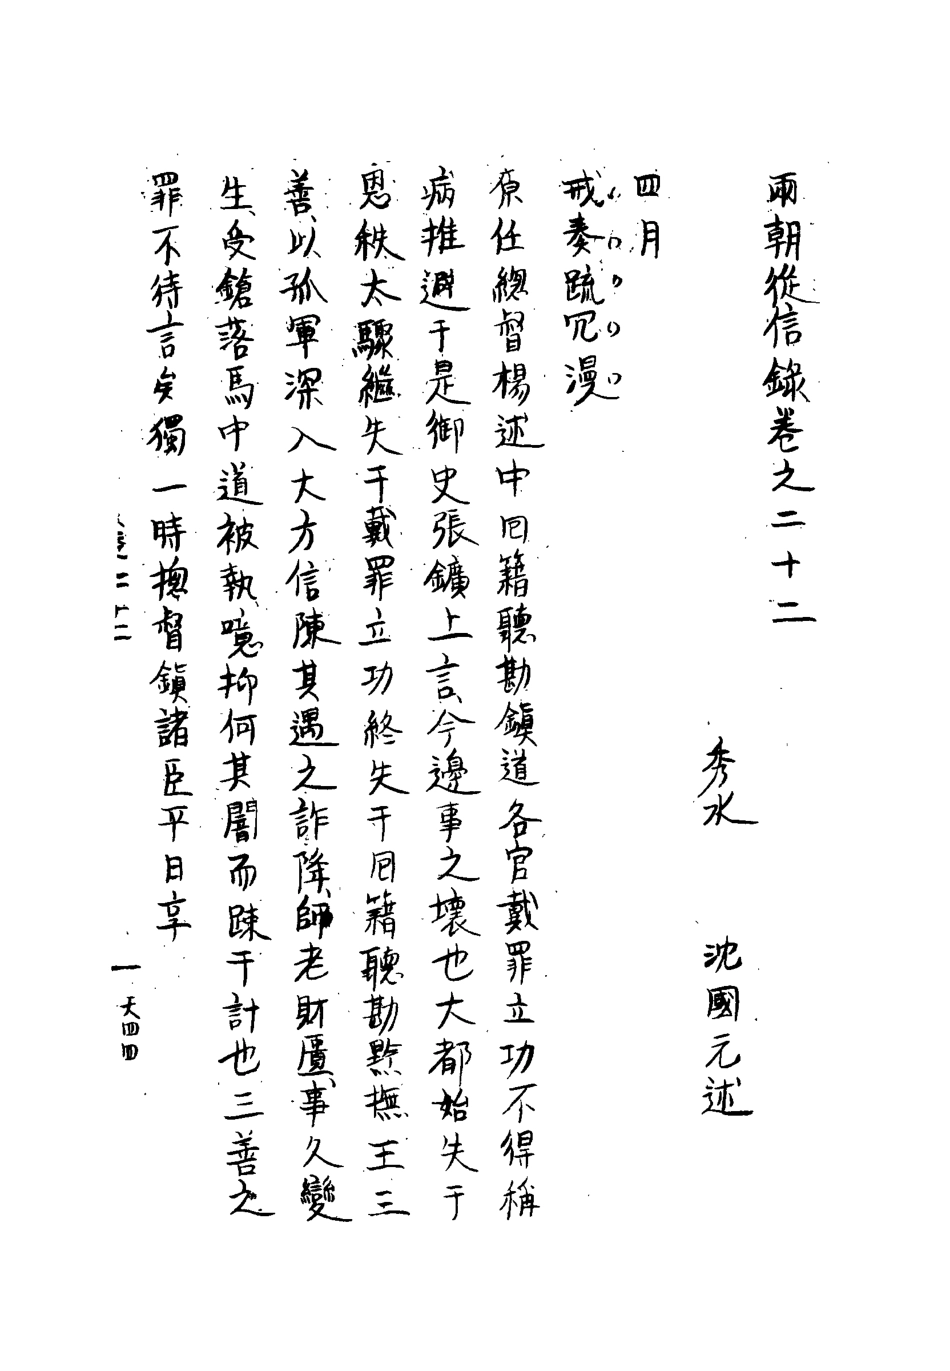 兩朝從信錄卷之二十二
秀水 沈國元述
四月
戒奏疏冗漫
原任總督楊述中囘籍聽勘鎮道各官戴罪立功不得稱
病推避于是御史張鑛上言今邊事之壞也大都始失于
恩秩太驟繼失于戴罪立功終失于囘籍聽勘黔撫王三
善以孤軍深入大方信陳其遇之詐降師老財匱事久變
生受鎗落馬中道被執噫抑何其闇而踈于計也三善之
罪不待言矣獨一時摠督鎮諸臣平日享
卷二十二
一
天四四